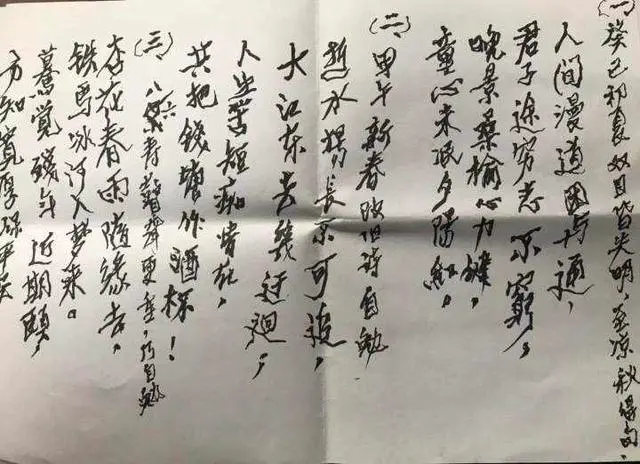 (一)癸巳初夏双目皆失明，至凉秋得句，
人间漫道困与通，
君子途穷志不穷，
晚景桑榆心力
童心未泯夕阳红。
(二)甲午新春改旧诗自勉
水扬长可追，
大江东去几迂迴，
人生苦短痴情
共把钱塘作酒杯！
(三)八六更重，乃自勉
杏花春雨随缘去，
铁马冰河入梦来。
蓦觉残年近期颐，
方知宽厚